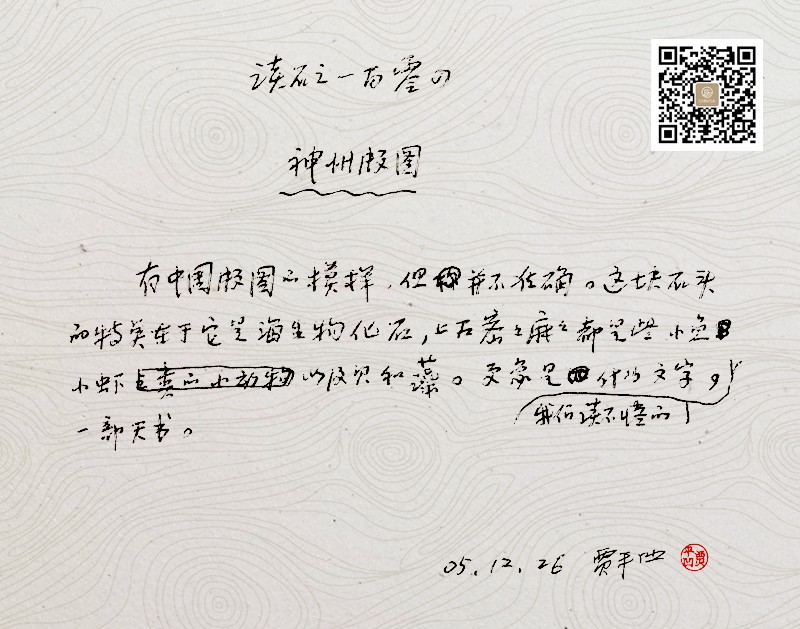 读石之一百零四
神州版图
有中国版图的模样,但并不准确。这块石头
的特美在于它是海生物化石,上石密密麻麻都是些小鱼
小虾类的小动物以及贝和藻。更象是什么文字,
我们读不懂的
一部天书。
05.12.26 贾平凹
平凹 贾